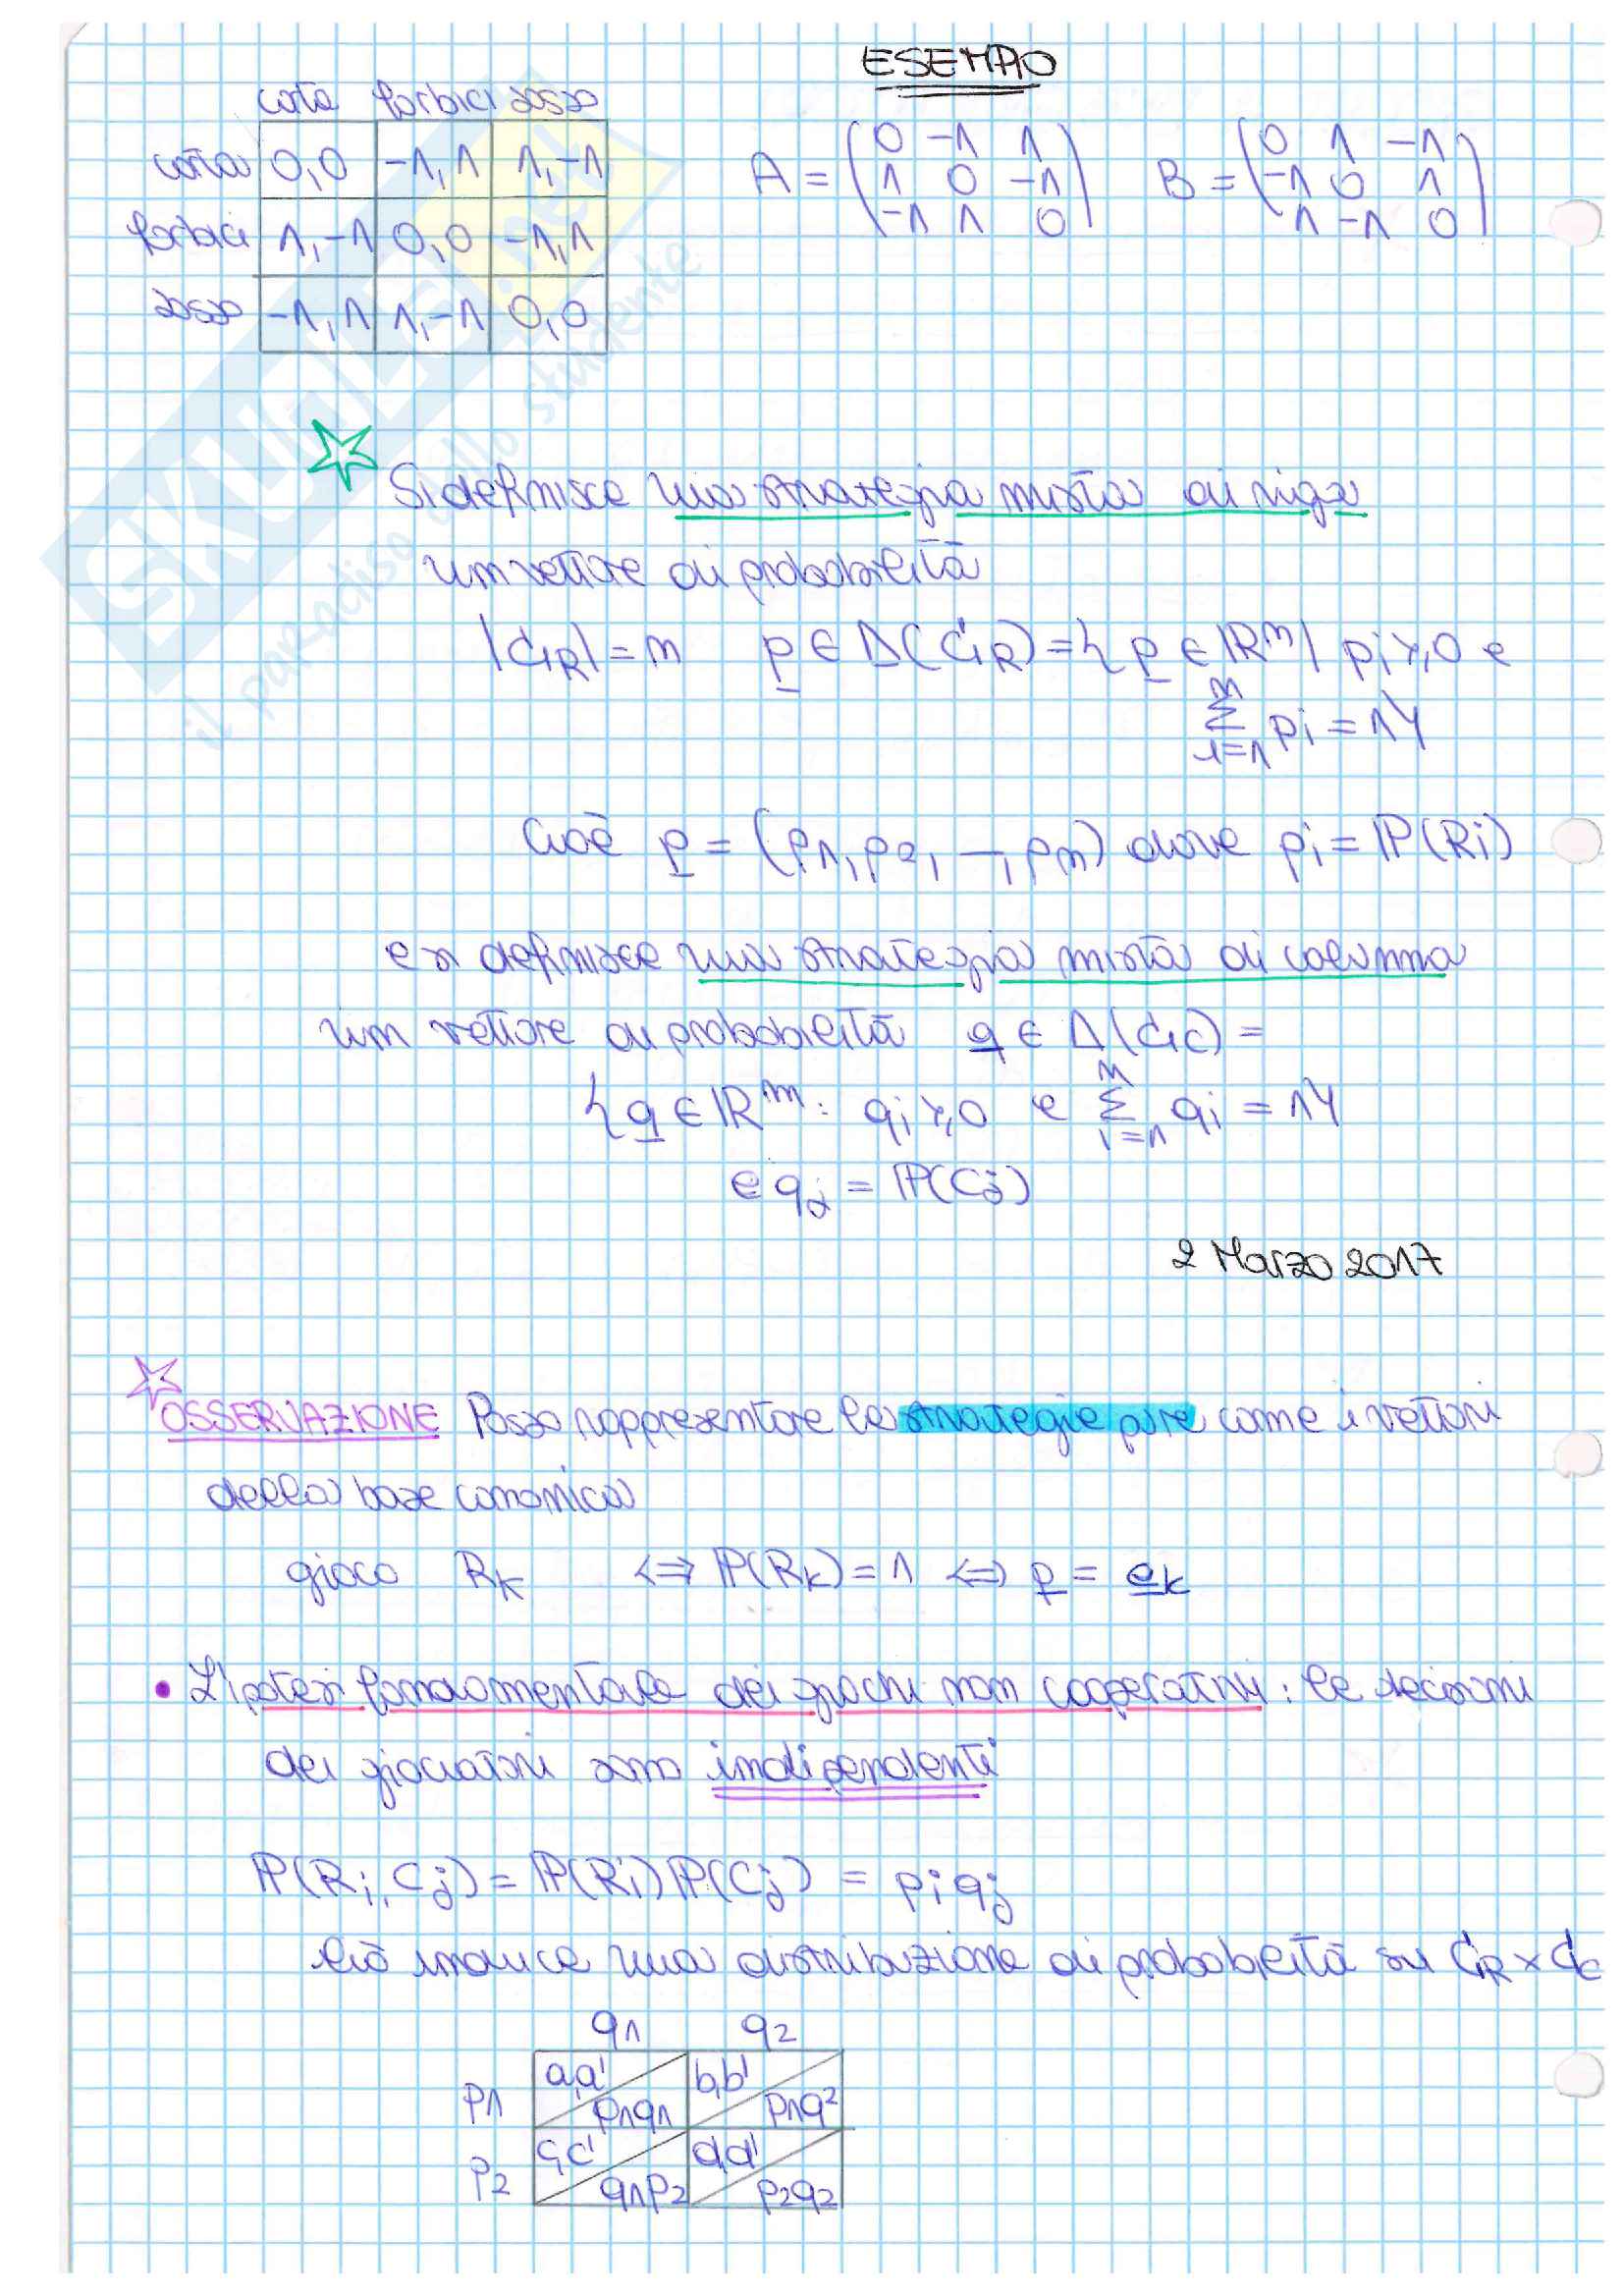 ESEMPIO
carta forbici sasso
carta 0,0 -1,1 1,-1
forbici 1,-1 0,0 -1,1
sasso -1,1 1,-1 0,0
A = (0 -1 1
1 0 -1
-1 1 0)
B = (0 1 -1
-1 0 1
1 -1 0)
SKUOLA.net
il paradiso dello studente
Si definisce una strategia mista di riga
un vettore di probabilità
|G_R| = n p ∈ Δ(G_R) = { p ∈ ℝⁿ | pi ≥ 0 e
Σ_{i=1}^n pi = 1 }
cioè p = (p1, p2, —, pn) dove pi = ℙ(Ri)
e si definisce una strategia mista di colonna
un vettore di probabilità q ∈ Δ(G_C) =
{ q ∈ ℝᵐ : qi ≥ 0 e Σ_{i=1}^m qi = 1 }
e qj = ℙ(Cj)
2 Marzo 2017
OSSERVAZIONE Posso rappresentare le strategie pure come i vettori
della base canonica
gioco Rk ⇔ ℙ(Rk) = 1 ⇔ p = ek
• L'ipotesi fondamentale dei giochi non cooperativi: le decisioni
dei giocatori sono indipendenti
ℙ(Ri, Cj) = ℙ(Ri)ℙ(Cj) = pi qj
Ciò induce una distribuzione di probabilità su G_R × G_C
q1 q2
p1 a,a' p1q1 b,b' p1q2
p2 c,c' q1p2 d,d' p2q2